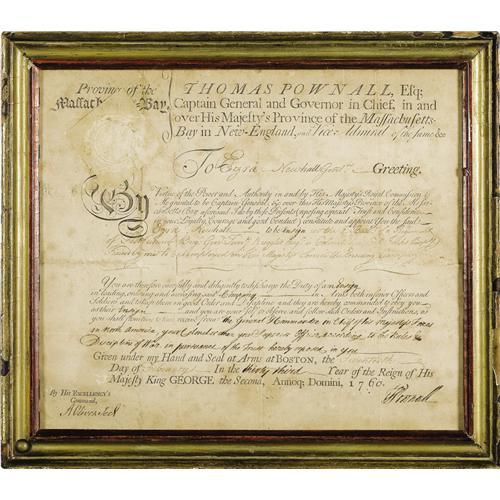 Province of the
Massachusetts-Bay,
THOMAS POWNALL, Esq;
Captain General and Governor in Chief, in and
over His Majesty's Province of the Massachusetts-
Bay in New-England, and Vice-Admiral of the same &c
To Ezra Newhall Gent. Greeting.
By Virtue of the Power and Authority, in and by His Majesty's Royal Commission to
Me granted to be Captain General, &c. over this His Majesty's Province of the Massachusetts-Bay aforesaid, I do by these Presents (reposing especial Trust and Confidence
in your Loyalty, Courage and good Conduct) constitute and appoint you the said
Ezra Newhall to be Ensign
You are therefore carefully and diligently to discharge the Duty of an Ensign
in leading, ordering and exercising said Company in Arms, both inferiour Officers and
Soldiers, and to keep them in good Order and Discipline, and they are hereby commanded to obey you
as their Ensign and you are your self to observe and follow such Orders and Instructions, as
you shall from time to time receive from the General & Commander in Chief of his Majesty's Forces
in North America, your Commander or any other your Superior Officer according to the Rules &
Discipline of War in pursuance of the Trust hereby reposed in you
Given under my Hand and Seal at Arms at BOSTON, the
Day of In the thirty third Year of the Reign of His
Majesty King GEORGE the Second, Annoq; Domini, 1760.
By His EXCELLENCY'S
Command,
A Oliver Secy
TPownall